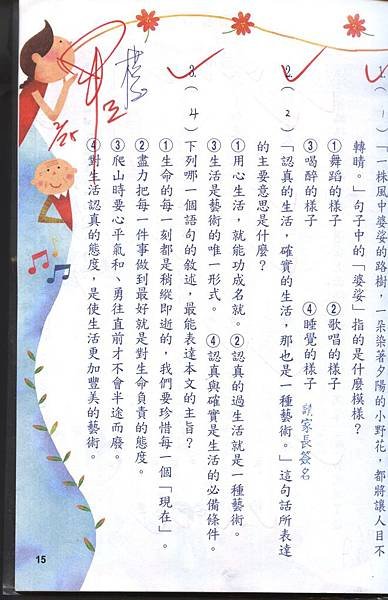 1.（ 1 ）「一株風中婆娑的路樹，一朵染著夕陽的小野花，都將讓人目不
轉睛。」句子中的「婆娑」指的是什麼模樣？
①舞蹈的樣子　②歌唱的樣子
③喝醉的樣子　④睡覺的樣子
請家長簽名
2.（ 2 ）「認真的生活，確實的生活，那也是一種藝術。」這句話所表達
的主要意思是什麼？
①用心生活，就能功成名就。　②認真的過生活就是一種藝術。
③生活是藝術的唯一形式。　④認真與確實是生活的必備條件。
3.（ 4 ）下列哪一個語句的敘述，最能表達本文的主旨？
①生命的每一刻都是稍縱即逝的，我們要珍惜每一個「現在」。
②盡力把每一件事做到最好就是對生命負責的態度。
③爬山時要心平氣和、勇往直前才不會半途而廢。
④對生活認真的態度，是使生活更加豐美的藝術。
15